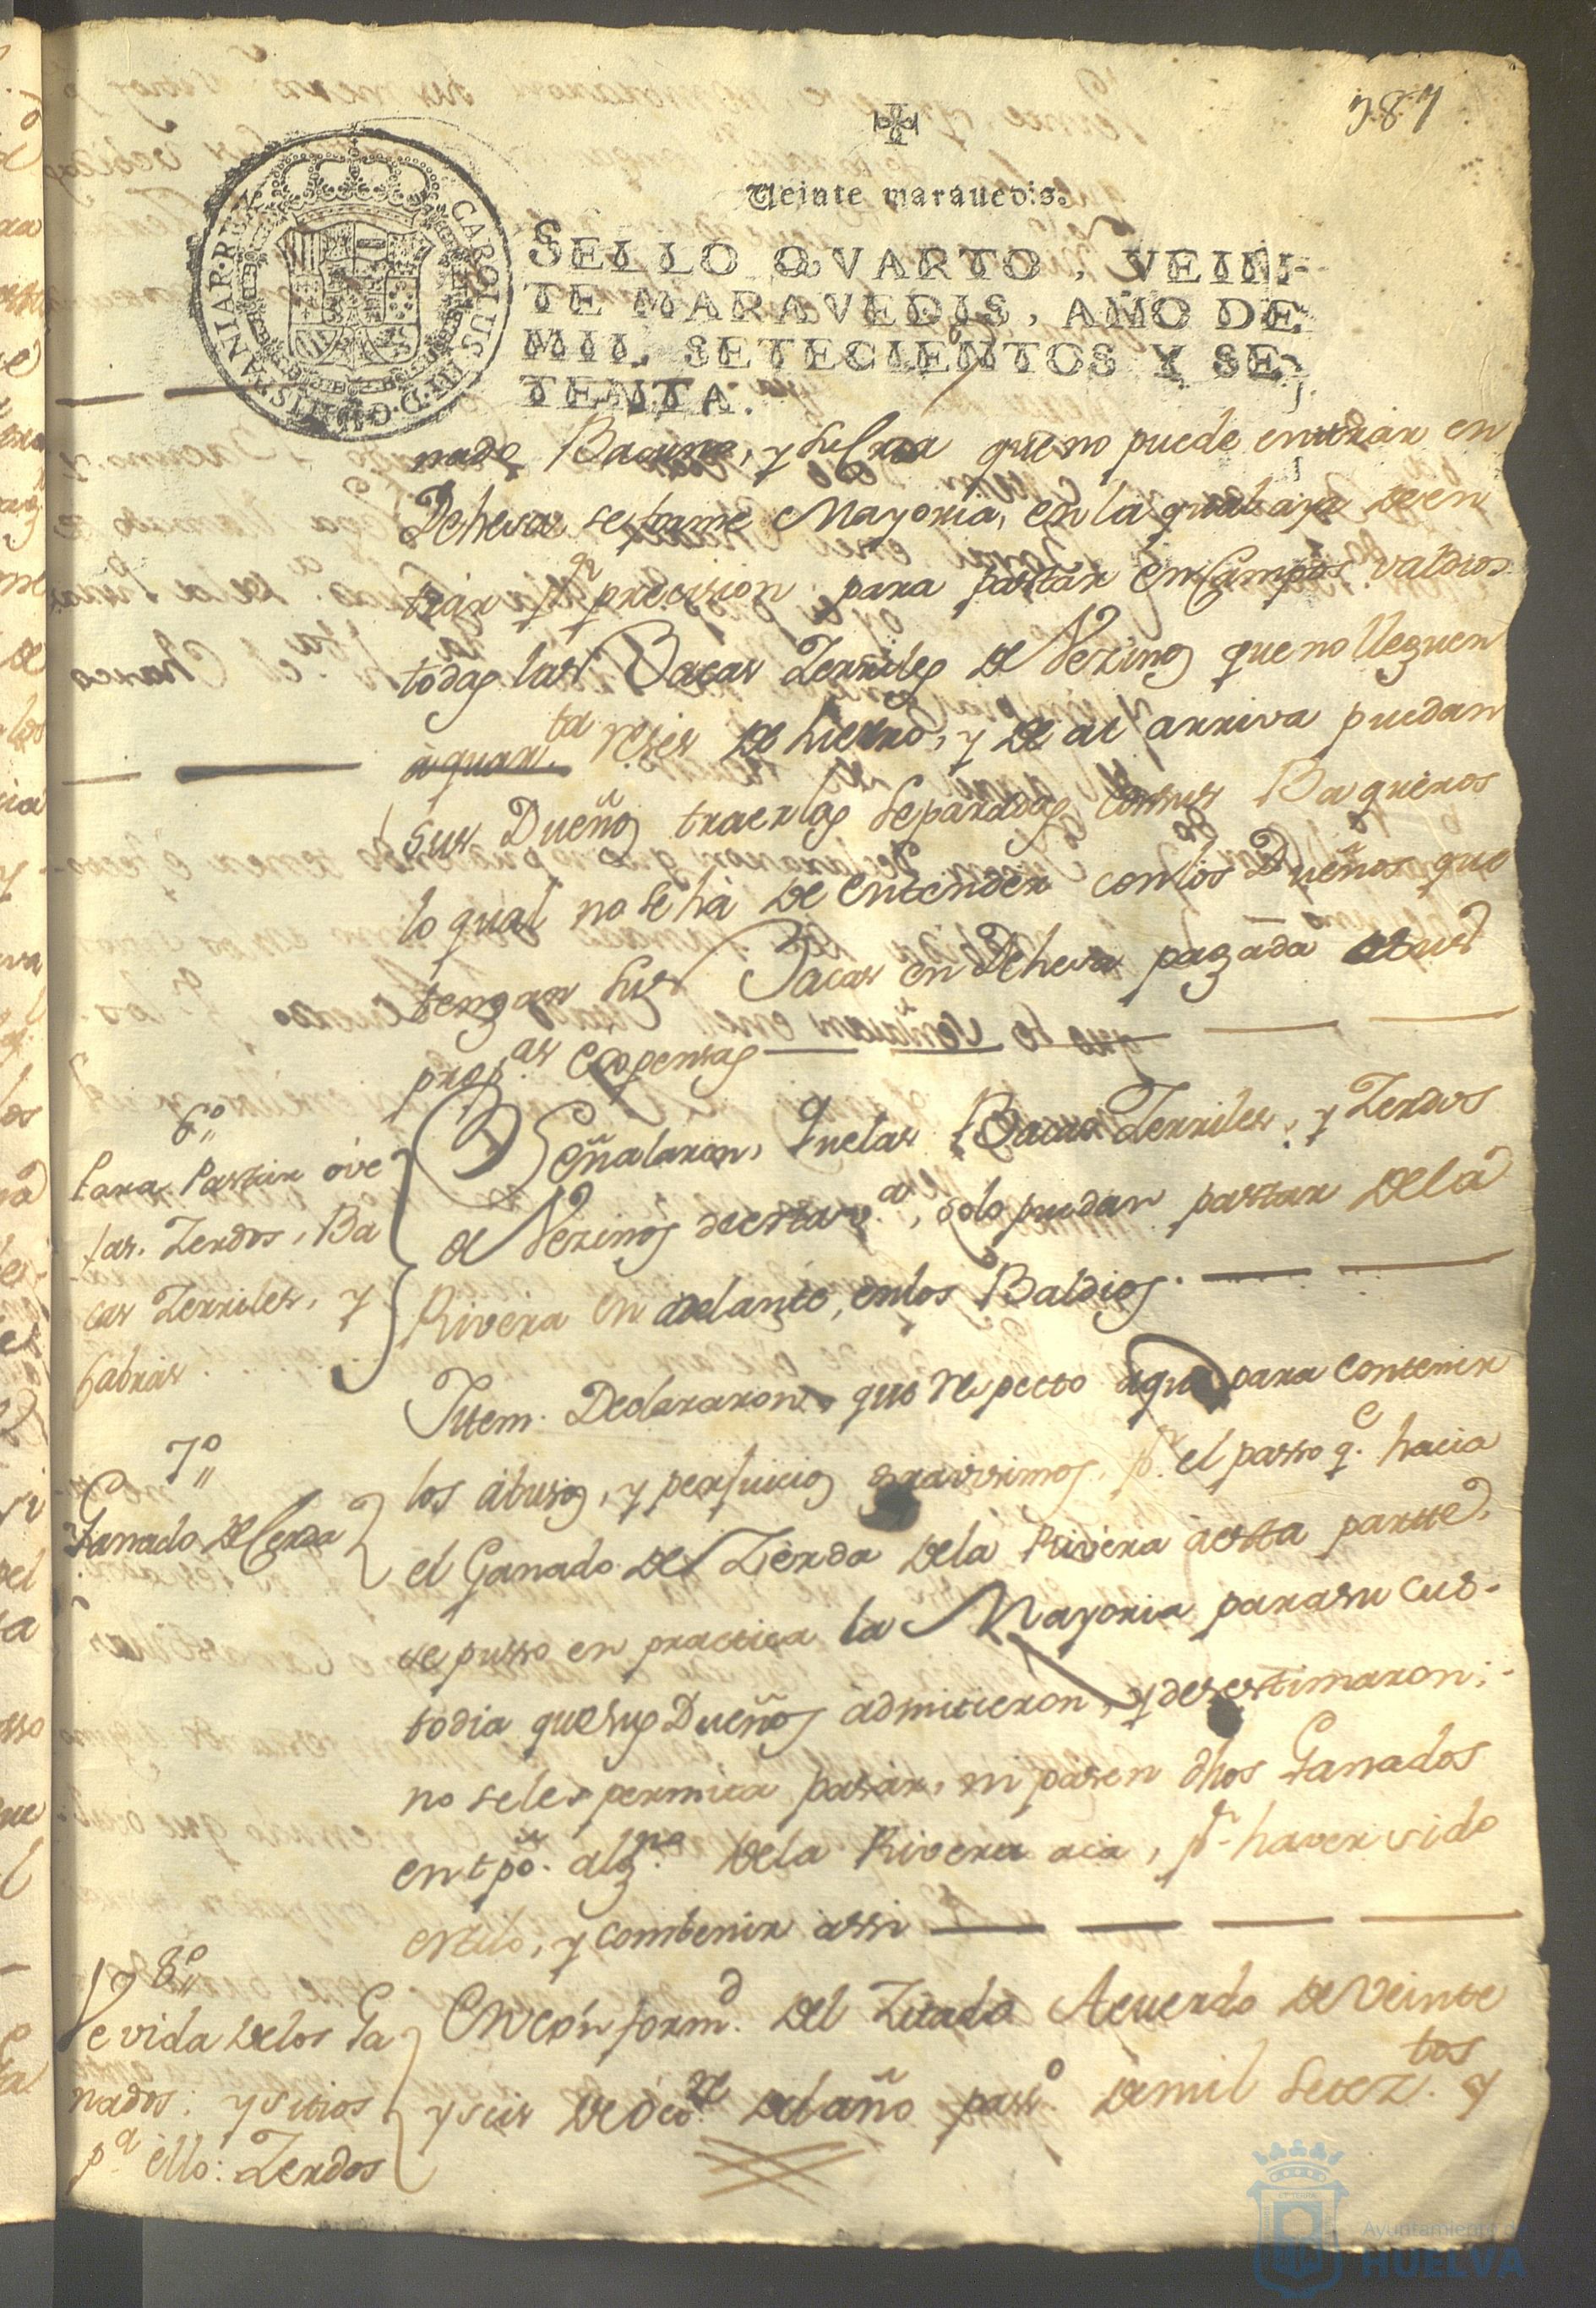 387
Veinte marauedis.
SELLO QVARTO, VEIN-
TE MARAVEDIS, AÑO DE
MIL SETECIENTOS Y SE-
TENTA.
CAROLUS III D G HISPANIAR REX
nado Bacuno, y que no puede entrar en
Dehesa se forme Mayoria, en la qual aya de en
trar pr precision para pastar en Campos valdios
todas las Bacas Zerriles de Vezinos que no lleguen
a quarta reses de hierro, y de ai arriva puedan
sus Dueños traerlas separadas con sus Baqueros
lo qual no se hà de entender con los Dueños que
tengan sus Bacas en Dehesa pagada a sus
propas expensas
6º
Para Pastar ove
jas. Zerdos, Ba
cas Zerriles, y
Cabras
Señalaron, Que las Bacas Zerriles, y Zerdos
de Vezinos de esta va, solo puedan pastar dela
Rivera en adelante, en los Baldios.
7º
Ganado de Cerda
Ittem. Declararon, que respecto aque para contener
los abusos, y perjuicios gravissimos, pr el passo q.e hacia
el Ganado de Zerda dela Rivera àesta partte,
se pusso en practica la Mayoria para su cus-
todia que sus Dueños admitieron, y desestimaron;
no seles permita pasar, ni pasen dhos Ganados
en tpo. algno dela Rivera acà, pr haver sido
estilo, y combenir assi
8º
Vevida delos Ga
nados: y sitios
pa ello: Zerdos
En conformd. del Zitado Acuerdo de Veinte
y seis de Ocre del año passo demil Seteztos y
Ayuntamiento de
HUELVA